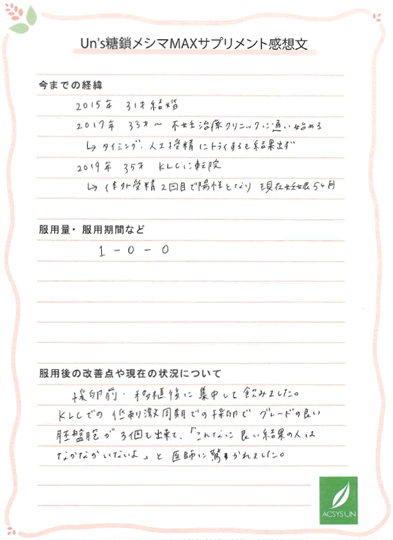 Un's糖鎖メシマMAXサプリメント感想文
今までの経緯
2015年 31才 結婚
2017年 33才〜 不妊治療クリニックに通い始める
↳ タイミング、人工授精にトライするも結果出ず
2019年 35才 KLCに転院
↳ 体外受精2回目で陽性となり 現在妊娠5ヶ月
服用量・服用期間など
1 - 0 - 0
服用後の改善点や現在の状況について
採卵前・移植後に集中して飲みました。
KLCでの低刺激周期での採卵で グレードの良い
胚盤胞が3個も出来て、「こんなに良い結果の人は
なかなかいないよ」と医師に驚かれました。
ACSYS UN